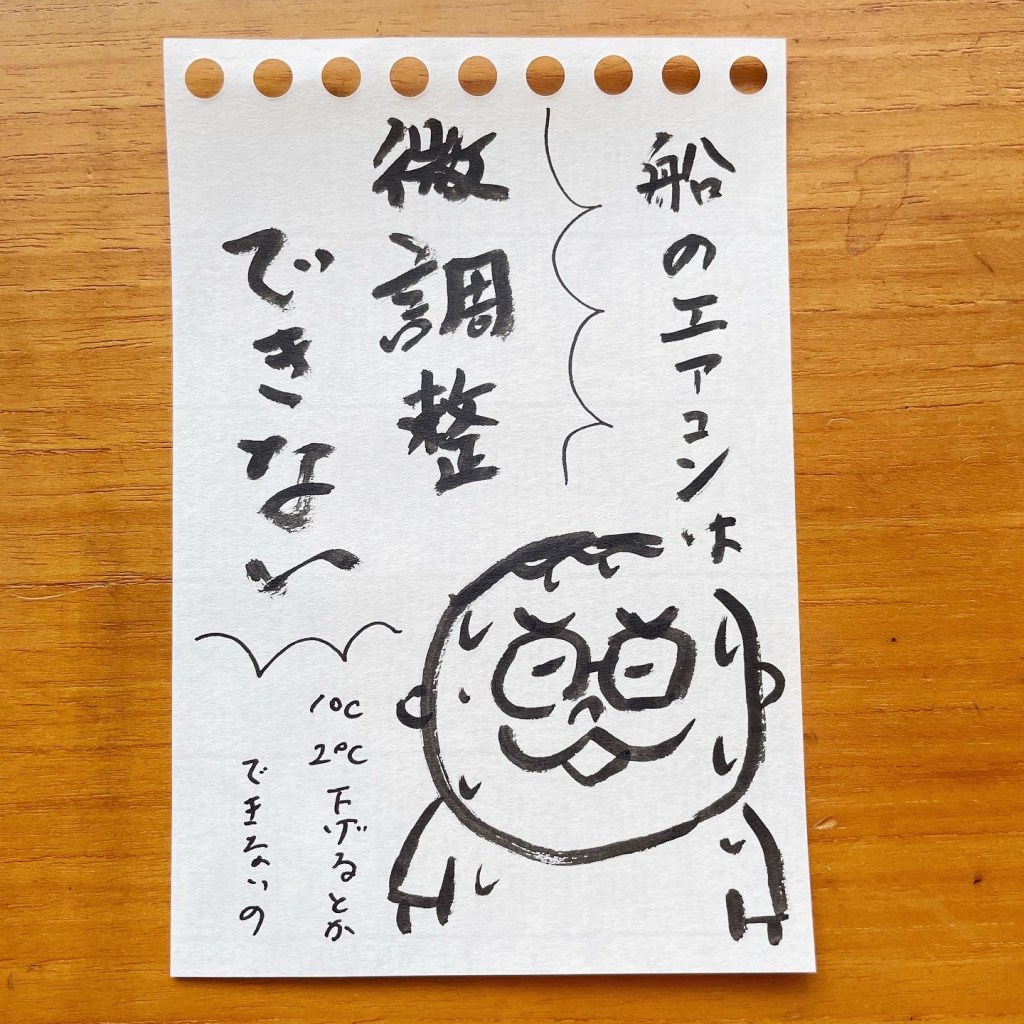 船のエアコンは
微調整
できない
1℃
2℃下げるとか
できないの